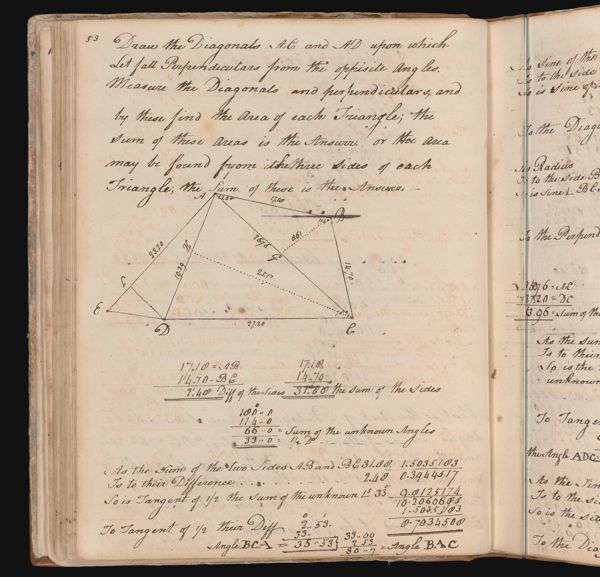 53
Draw the Diagonals AC and AD upon which
Let fall Perpendiculars from the opposite Angles.
Measure the Diagonals and perpendiculars, and
by these find the Area of each Triangle; the
Sum of these Areas is the Answer or the Area
may be found from the three sides of each
Triangle; the Sum of these is the Answer.
A
B
114°
2320
H
1939
2696
861
G
2517
14.70
E
D
27.20
C
17.18 = AB
14.70 = BC
2.48 Diff of the Sides
17.18
14.70
31.88 the Sum of the Sides
180 .. 0
114 .. 0
66 .. 0 = Sum of the unknown Angles
33 .. 0 = 1/2 Do
As the Sum of the two Sides AB and BC 31.88 1.5035183
Is to their Difference 2.48 0.3944517
So is Tangent of 1/2 the Sum of the unknown Ls 33° 9.8125174
10.2069688
1.5035183
To Tangent of 1/2 their Diff 2..53. 8.7034508
33..
Angle BCA = 35..53
33..00
2..53
30..7 = Angle BAC
As Sine of the
Is to the Side
So is Sine of
To the Diag
As Radius
Is to the Side B
So is Sine L BC
To the Perpend
2696 = AC
2720 = DC
Sum of the
As the Sum
Is to their
So is the
unknown
To Tange
the Angle ADC
As the Sine
Is to the Si
So is the Si
To the Dia